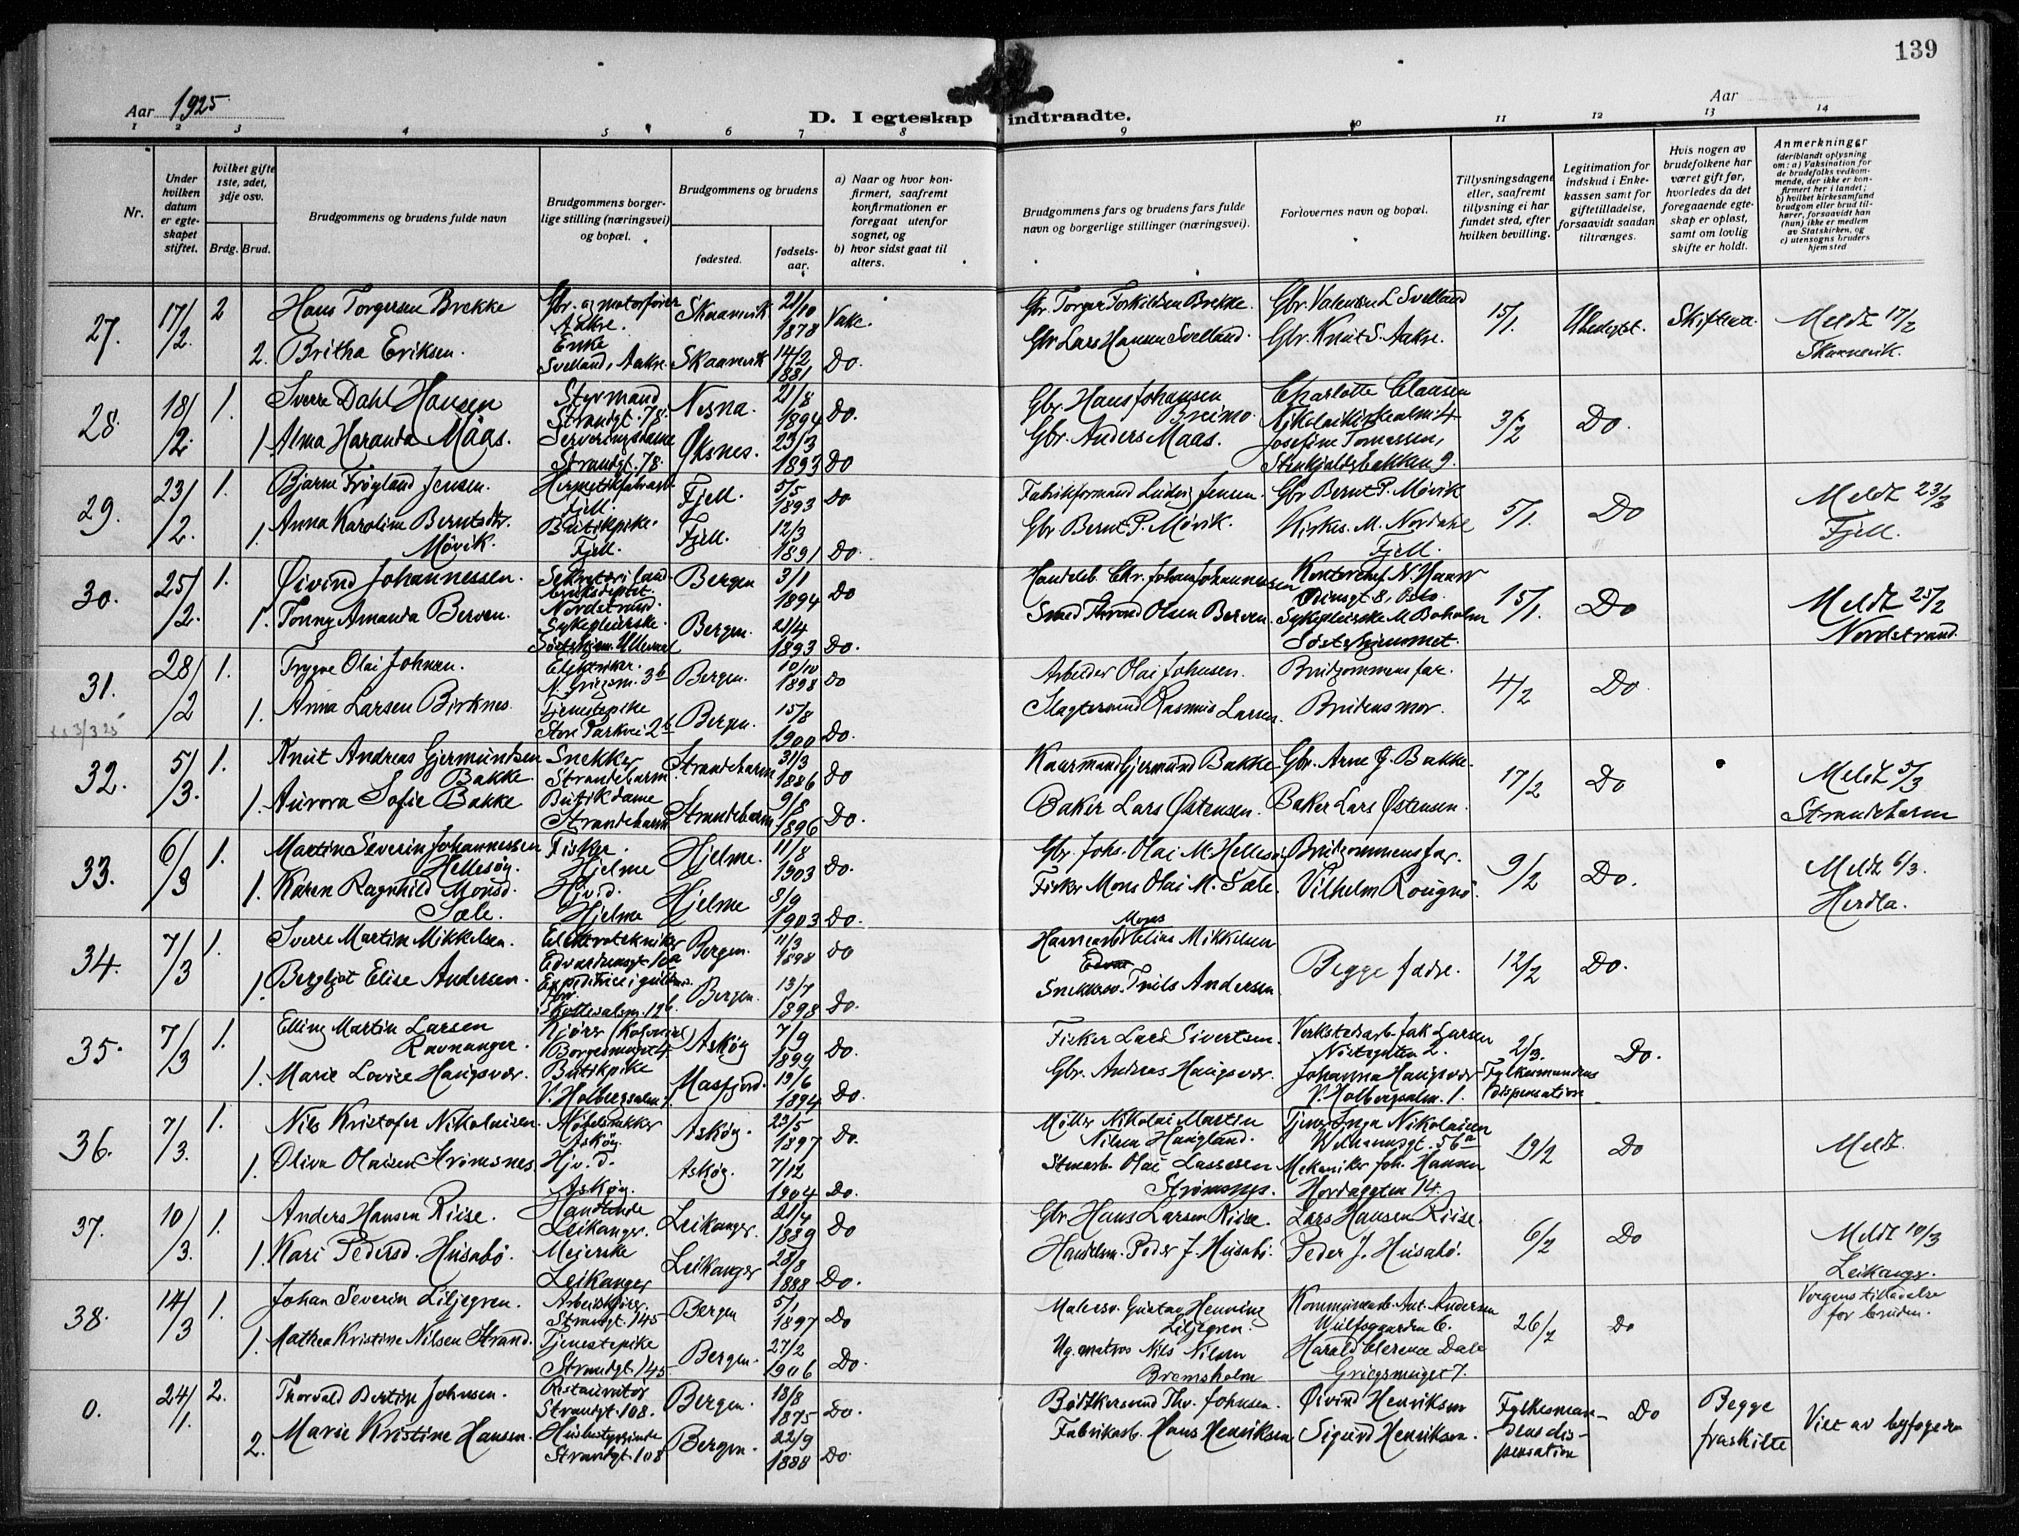 139
Aar 1925
Aar
D. I egteskap indtraadte.
1 2 3 4 5 6 7 8 9 10 11 12 13 14
Nr.
Under hvilken datum er egte-skapet stiftet.
hvilket gifte 1ste, 2det, 3dje osv.
Brdg. Brud.
Brudgommens og brudens fulde navn
Brudgommens borger-lige stilling (næringsvei) og bopæl.
Brudgommens og brudens
fødested.
fødsels-aar.
a) Naar og hvor kon-firmert, saafremt konfirmationen er foregaat utenfor sognet, og
b) hvor sidst gaat til alters.
Brudgommens fars og brudens fars fulde navn og borgerlige stillinger (næringsvei).
Forlovernes navn og bopæl.
Tillysningsdagene eller, saafremt tillysning ei har fundet sted, efter hvilken bevilling.
Legitimation for indskud i Enke-kassen samt for giftetilladelse, forsaavidt saadan tiltrænges.
Hvis nogen av brudefolkene har været gift før, hvorledes da det foregaaende egte-skap er opløst, samt om lovlig skifte er holdt.
Anmerkninger (deriblandt oplysning om: a) Vaksination for de brudefolks vedkom-mende, der ikke er kon-firmert her i landet; b) hvilket kirkesamfund brudgom eller brud til-hører, forsaavidt han (hun) ikke er medlem av Statskirken, og c) utensogns bruders hjemsted
27. 17/2 2 Hans Torgersen Brekke Gbr. og motorfører Aakre. Skaanevik 21/10 1878 Vake. Gbr Torger Torkildsen Brekke. Gbr. Valentin L Svelland 15/1. Ubedgtet. Skiftea. Meldt 17/2 Skaanevik.
2. Britha Eriksen. Enke Svelland, Aakre Skaanevik 14/2 1881 Do. Gbr Lars Hansen Svelland. Gbr. Knut S. Aakre.
28. 18/2 1. Sverre Dahl Hansen Styrmand Strandgt. 78. Nesna. 21/8 1894 Do. Gbr. Hans Johansen Breimo. Charlotte Clausen Nikolaikirkealm. 4 3/2 Do.
1. Alma Haranda Maas. Serveringsdame Strandgt. 78. Øksnes. 23/3 1893 Do Gbr. Anders Maas. Josefine Tomassen, Stenkjeldsbakken 9.
29. 23/2. 1. Bjarne Frøyland Jensen. Hermetikfabrarb. Fjell. Fjell. 5/5 1893 Do Fabrikformand Ludvig Jensen. Gbr Bernt P. Møvik 5/1. Do Meldt 23/2 Fjell.
1. Anna Karoline Berntsdtr. Møvik. Butikpike. Fjell. Fjell. 12/3 1891 Do. Gbr Bernt P. Møvik. Kirkes. M. Nordahl Fjell.
30. 25/2. 1. Øivind Johannessen. Sekretær i land-bruksdeptet. Nordstrand. Bergen 3/1 1894 Do Handelsb. Chr. Johan Johannessen Kontorchef N. Odinsgt 8, Oslo. 15/1. Do Meldt 25/2 Nordstrand.
1. Tonny Amanda Berven. Sykepleierske. Bergen. 21/4 1893 Do. Smed Thrond Olsen Berven. Sykepleierske M Boholm
31. 28/2 1. Trygve Olai Johnsen. Elektriker. Bergen. 10/10 1898 Do Arbeider Olai Johnsen. Brudgommens far. 4/2 Do.
1. Anna Larsen Birknes. Tjenestepike Store Parkvei 2b Bergen. 15/8 1900 Do. Slagtersvend Rasmus Larsen. Brudens mor.
32. 5/3. 1. Knut Andreas Gjermundsen Bakke. Snekker Strandebarm Strandebarm 31/3 1886 Do Kaarmand Gjermund Bakke Gbr. Arne G. Bakke. 17/2 Do Meldt 5/3 Strandebarm
1. Aurora Sofie Bakke Butikdame Strandebarm Strandebarm 9/8 1896 Do. Baker Lars Østensen. Baker Lars Østensen.
33. 6/3 1. Martin Severin Johannessen Hellesøy. Fisker. Hjelme Hjelme. 11/8 1903 Do. Gbr. Johs. Olai M. Hellesø. Brudgommens far. 9/2 Do. Meldt 6/3. Herdla.
1. Karen Ragnhild Monsd. Sæle. Hjv. d. Hjelme Hjelme 3/9 1903 Do. Fisker Mons Olai M. Sæle. Vilhelm Rougnø.
34. 7/3 1. Sverre Martin Mikkelsen. Elektrotekniker Bergen. 11/3 1898 Do Mons Elias Mikkelsen Begge fædre. 12/2 Do.
1. Bergljot Elise Andersen. Bergen. 13/7 1898 Do Snekkersv. Troils Andersen.
35. 7/3 1. Elling Martin Larsen Ravnanger. Kjører (Kolonial) Borgermuget 4. Askøy 7/9 1899 Do. Fisker Lars Sivertsen. Verkstedsarb. Jak Larsen Nøstegaten 2. 2/3. Fylkesmandens dispensation Do.
1. Marie Lovise Haugsvær. Butikpike V. Holbergsalm. 1. Masfjord. 19/6 1894 Do. Gbr. Andreas Haugsvær. Johanna Haugsvær V. Holbergsalm. 1.
36. 7/3. 1. Nils Kristofer Nikolaisen. Møbelsnekker Askøy. Askøy. 23/5 1897 Do. Møller Nikolai Martin Nilsen Haugland. Inga Nikolaisen 56a 19/2 Do Meldt.
1. Oliva Olaisen Strømsnes Hjv. d. Askøy. Askøy. 7/12 1904 Do. Stenarb. Olai Lassesen Strømsnes. Mekaniker Joh. Hansen Hordagaten 14.
37. 10/3. 1. Anders Hansen Riise. Handlende Leikanger. Leikanger. 21/4 1889 Do Gbr Hans Larsen Riise. Lars Hansen Riise. 6/2 Do Meldt 10/3 Leikanger.
1. Kari Pedersd. Husabø. Meierske Leikanger Leikanger 28/8 1888 Do. Handelsm. Peder J. Husabø. Peder J. Husabø.
38. 14/3 1. Johan Severin Liljegren. Arbeidskjører. Strandgt. 145 Bergen 5/1 1897 Do Malersv. Gustav Henning Liljegren. Kommunearb. Ant. Andersen Wulfsgaarden 6. 26/2 Do Vergens tilladelse for bruden.
1. Mathea Kristine Nilsen Strand. Tjenestepike Strandgt. 145 Bergen. 27/2 1906 Do. Ug. matros Nils Nilsen Bremsholm Harald Clemence Dale Griegsmuget 7.
0. 24/1. 2. Thorvald Bertin Johnsen. Restauratør Strandgt. 108. Bergen. 18/8 1875 Do. Bødkersvend Thv. Johnsen. Øivind Henriksen Fylkesman-dens dis-pensation Do Begge fraskilte Viet av byfogden
2. Marie Kristine Hansen. Husbestyrerinde Strandgt. 108 Bergen. 22/9 1888 Do Fabrikarb. Hans Henriksen Sigurd Henriksen.